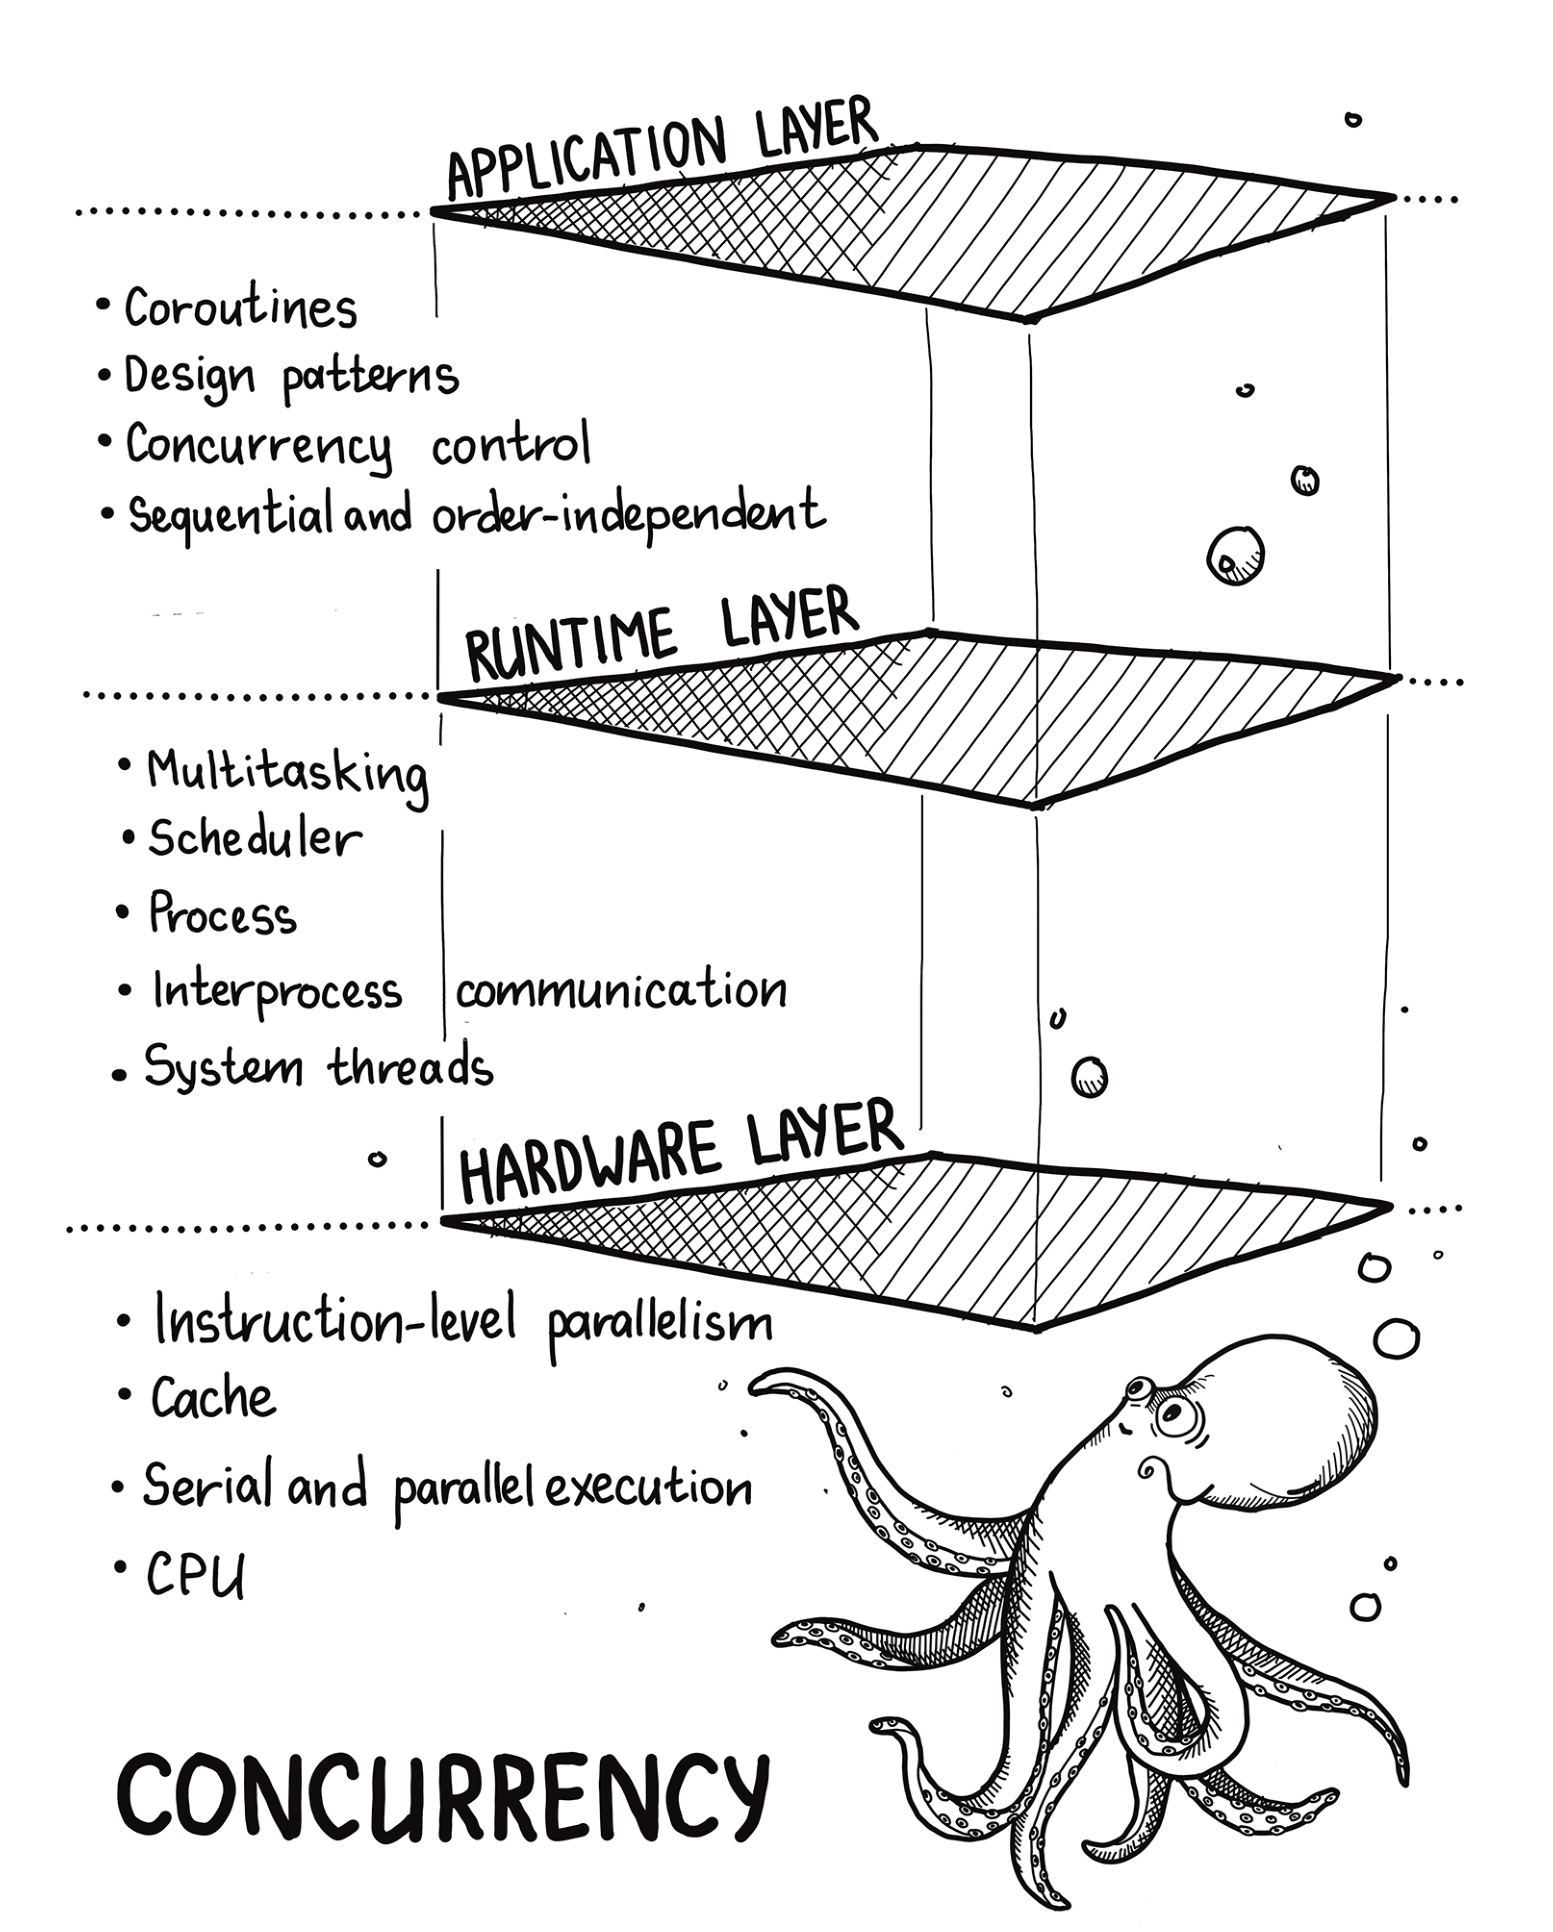 APPLICATION LAYER
• Coroutines
• Design patterns
• Concurrency control
• Sequential and order-independent
RUNTIME LAYER
• Multitasking
• Scheduler
• Process
• Interprocess communication
• System threads
HARDWARE LAYER
• Instruction-level parallelism
• Cache
• Serial and parallel execution
• CPU
CONCURRENCY